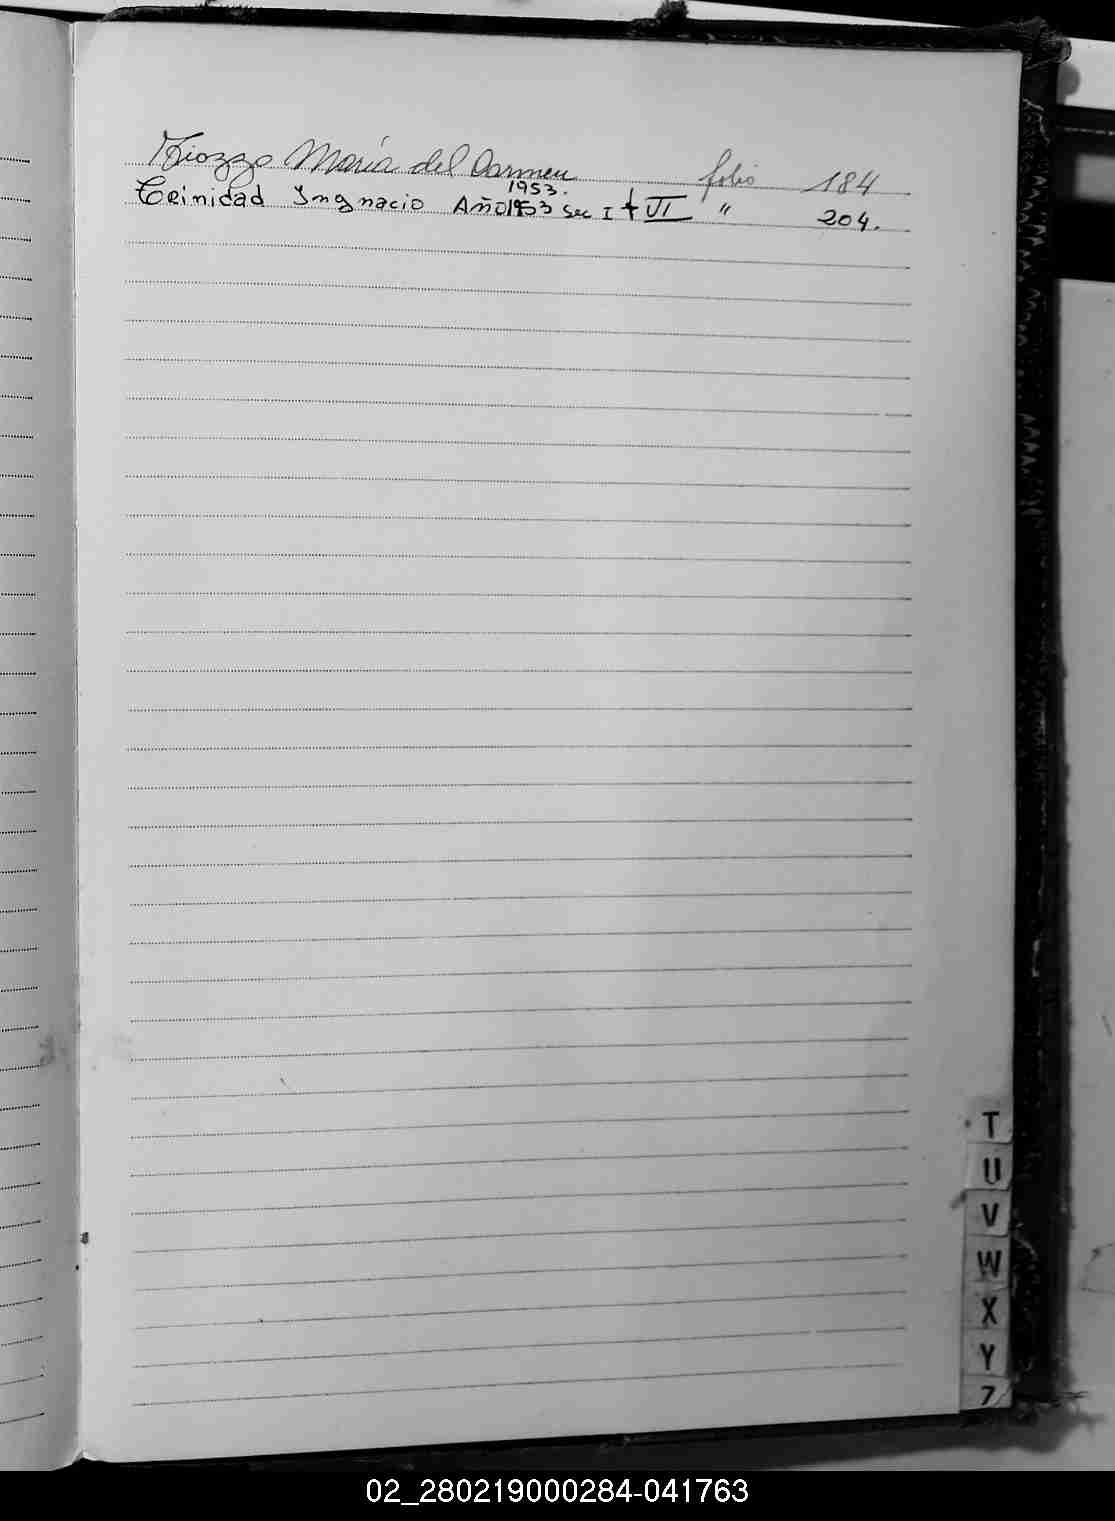 Tiozzo María del Carmen folio 184
1953.
Trinidad Ingnacio Año 1953 Sec I + VI " 204.
T
U
V
W
X
Y
Z
02_280219000284-041763